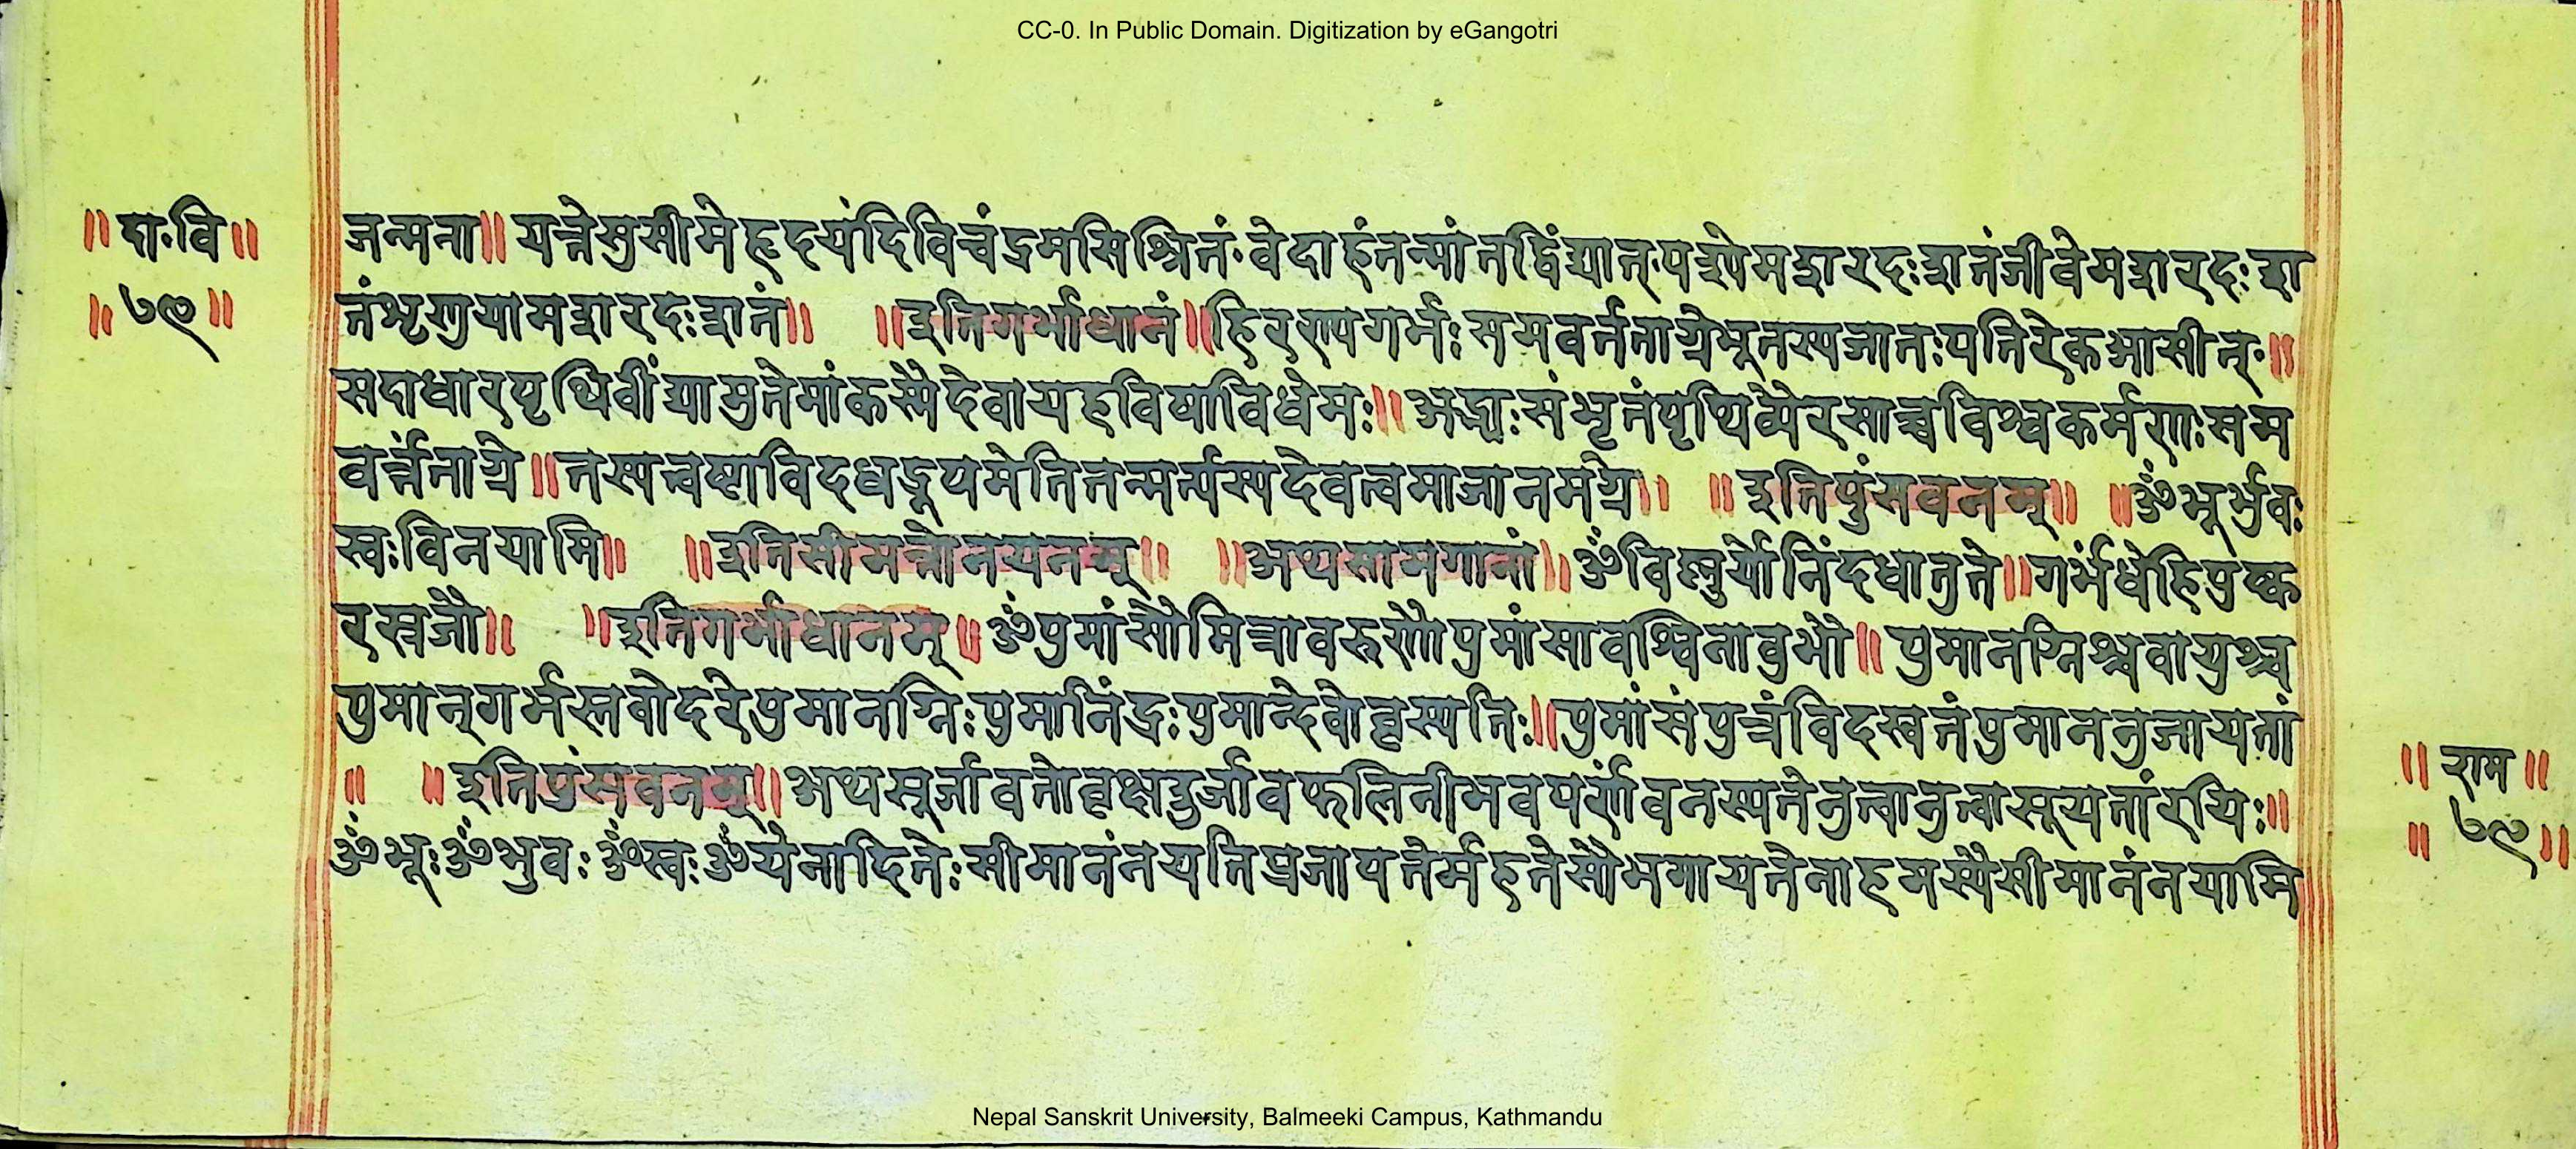 CC-0. In Public Domain. Digitization by eGangotri
॥ दा॰वि ॥
॥ ७९ ॥
जन्मना॥ यत्तेसुसीमेहृदयंदिविचंद्रमसिश्रितं॰वेदाहंतन्मांतद्विंद्यात्॰पश्येमशरदःशतंजीवेमशरदःश
तंशृणुयामशरदःशतं॥ ॥इतिगर्भाधानं॥हिरण्यगर्भःसमवर्त्तताग्रेभूतस्यजातःपतिरेकआसीत्॰॥
सदाधारपृथिवींद्यामुतेमांकस्मैदेवायहविषाविधेमः॥अद्भ्यःसंभृतंपृथिव्यैरसाच्चविश्वकर्मणःसम
वर्त्तंताग्रे॥तस्यत्वष्टाविदधद्रूपमेतितन्मर्त्यस्यदेवत्वमाजानमग्रे॥ ॥इतिपुंसवनम्॥ ॥ॐभूर्भुवः
स्वःविनयामि॥ ॥इतिसीमन्तोनयनम्॥ ॥अथसामगानां॥ॐविष्णुर्योनिंदधातुते॥गर्भंधेहिपुष्क
रस्रजौ॥ ॥इतिगर्भाधानम्॥ॐपुमांसौमित्रावरुणौपुमांसावश्विनावुभौ॥ पुमानग्निश्चवायुश्च
पुमान्गर्भस्तवोदरेपुमानग्निःपुमानिंद्रःपुमान्देवोवृहस्पतिः॥पुमांसंपुत्रंविदस्वतंपुमाननुजायतां
॥ ॥इतिपुंसवनम्॥अथसूर्जावतोवृक्षउर्जीवफलिनीभवपर्णंवनस्पतेनुत्वानुत्वासूयतांरयिः॥
ॐभूःॐभुवःॐस्वःॐयेनादितेःसीमानंनयतिप्रजापतेर्महतेसौभगायतेनाहमस्यैसीमानंनयामि
॥ राम ॥
॥ ७९ ॥
Nepal Sanskrit University, Balmeeki Campus, Kathmandu